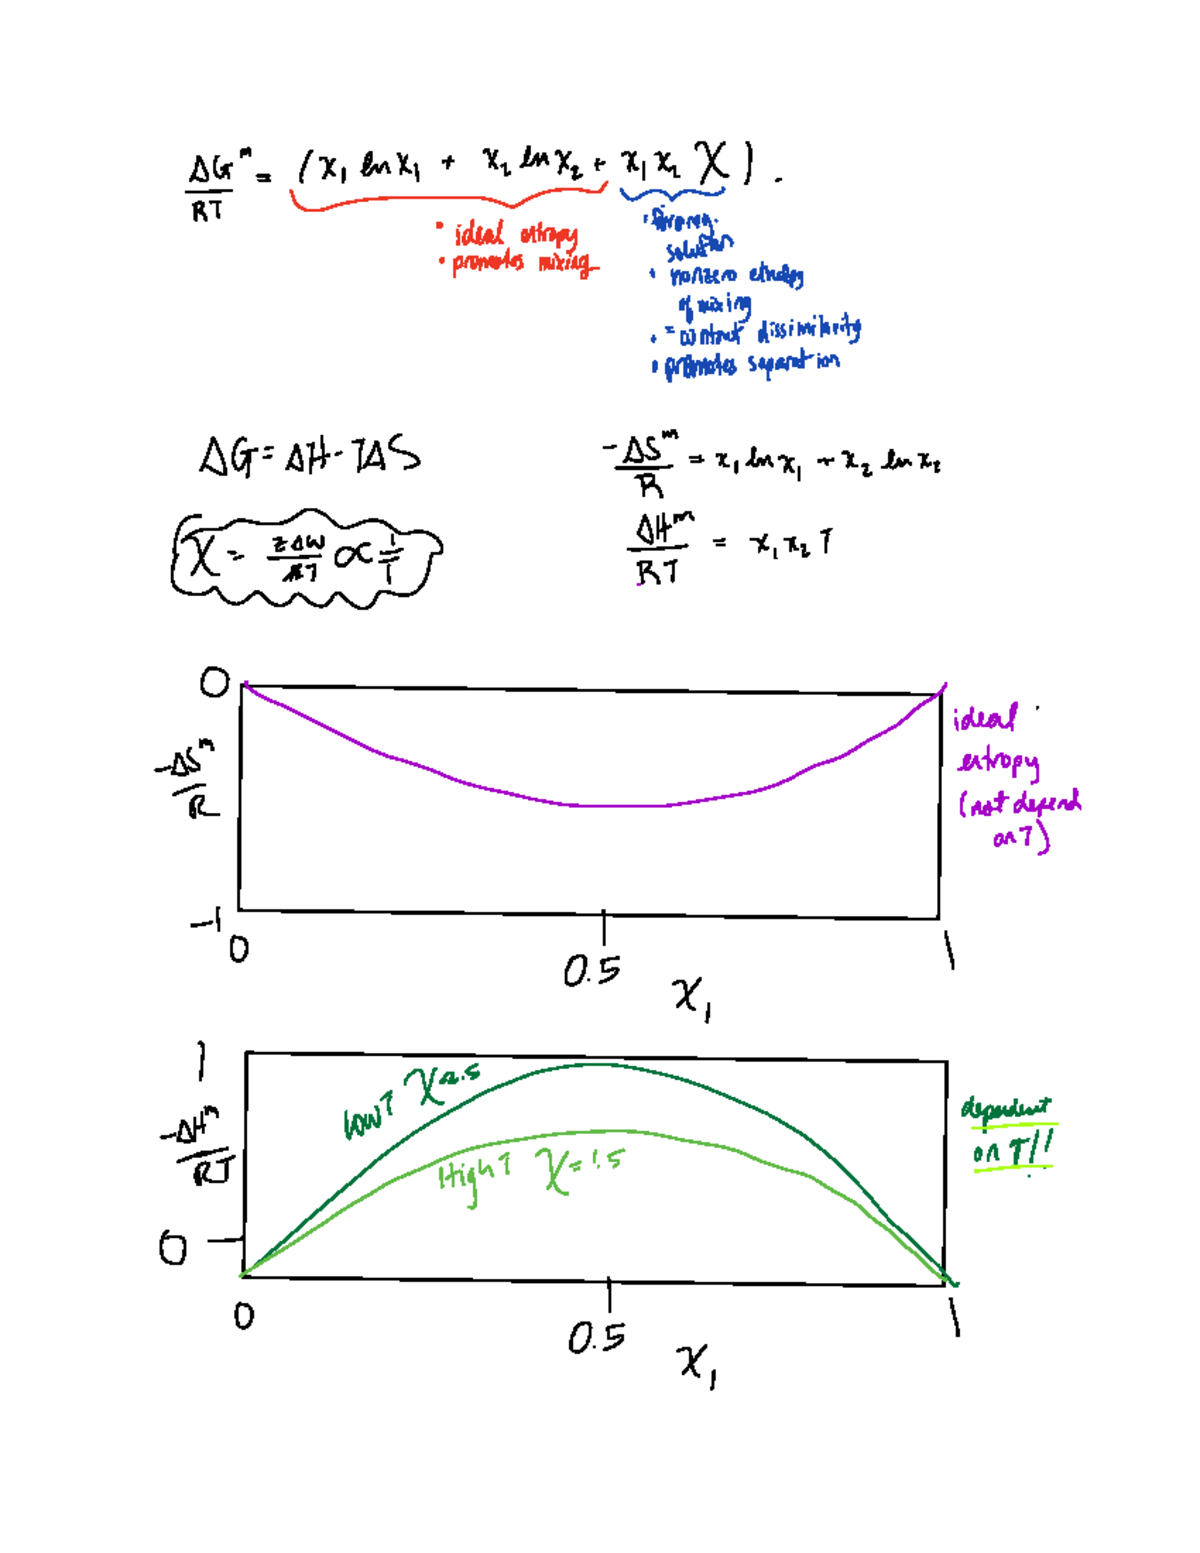 ΔG^m/RT = (x₁ ln x₁ + x₂ ln x₂ + x₁ x₂ χ).
• ideal entropy
• promotes mixing
solution
• nonzero enthalpy
of mixing
• = contact dissimilarity
• promotes separation
ΔG = ΔH - TΔS
-ΔS^m/R = x₁ ln x₁ + x₂ ln x₂
χ = zΔw/kT ∝ 1/T
ΔH^m/RT = x₁ x₂ T
0
-ΔS^m/R
-1
0
0.5
1
x₁
ideal
entropy
(not depend
on T)
1
-ΔH^m/RT
0
0
0.5
1
x₁
low T χ=2.5
High T χ=1.5
dependent
on T!!